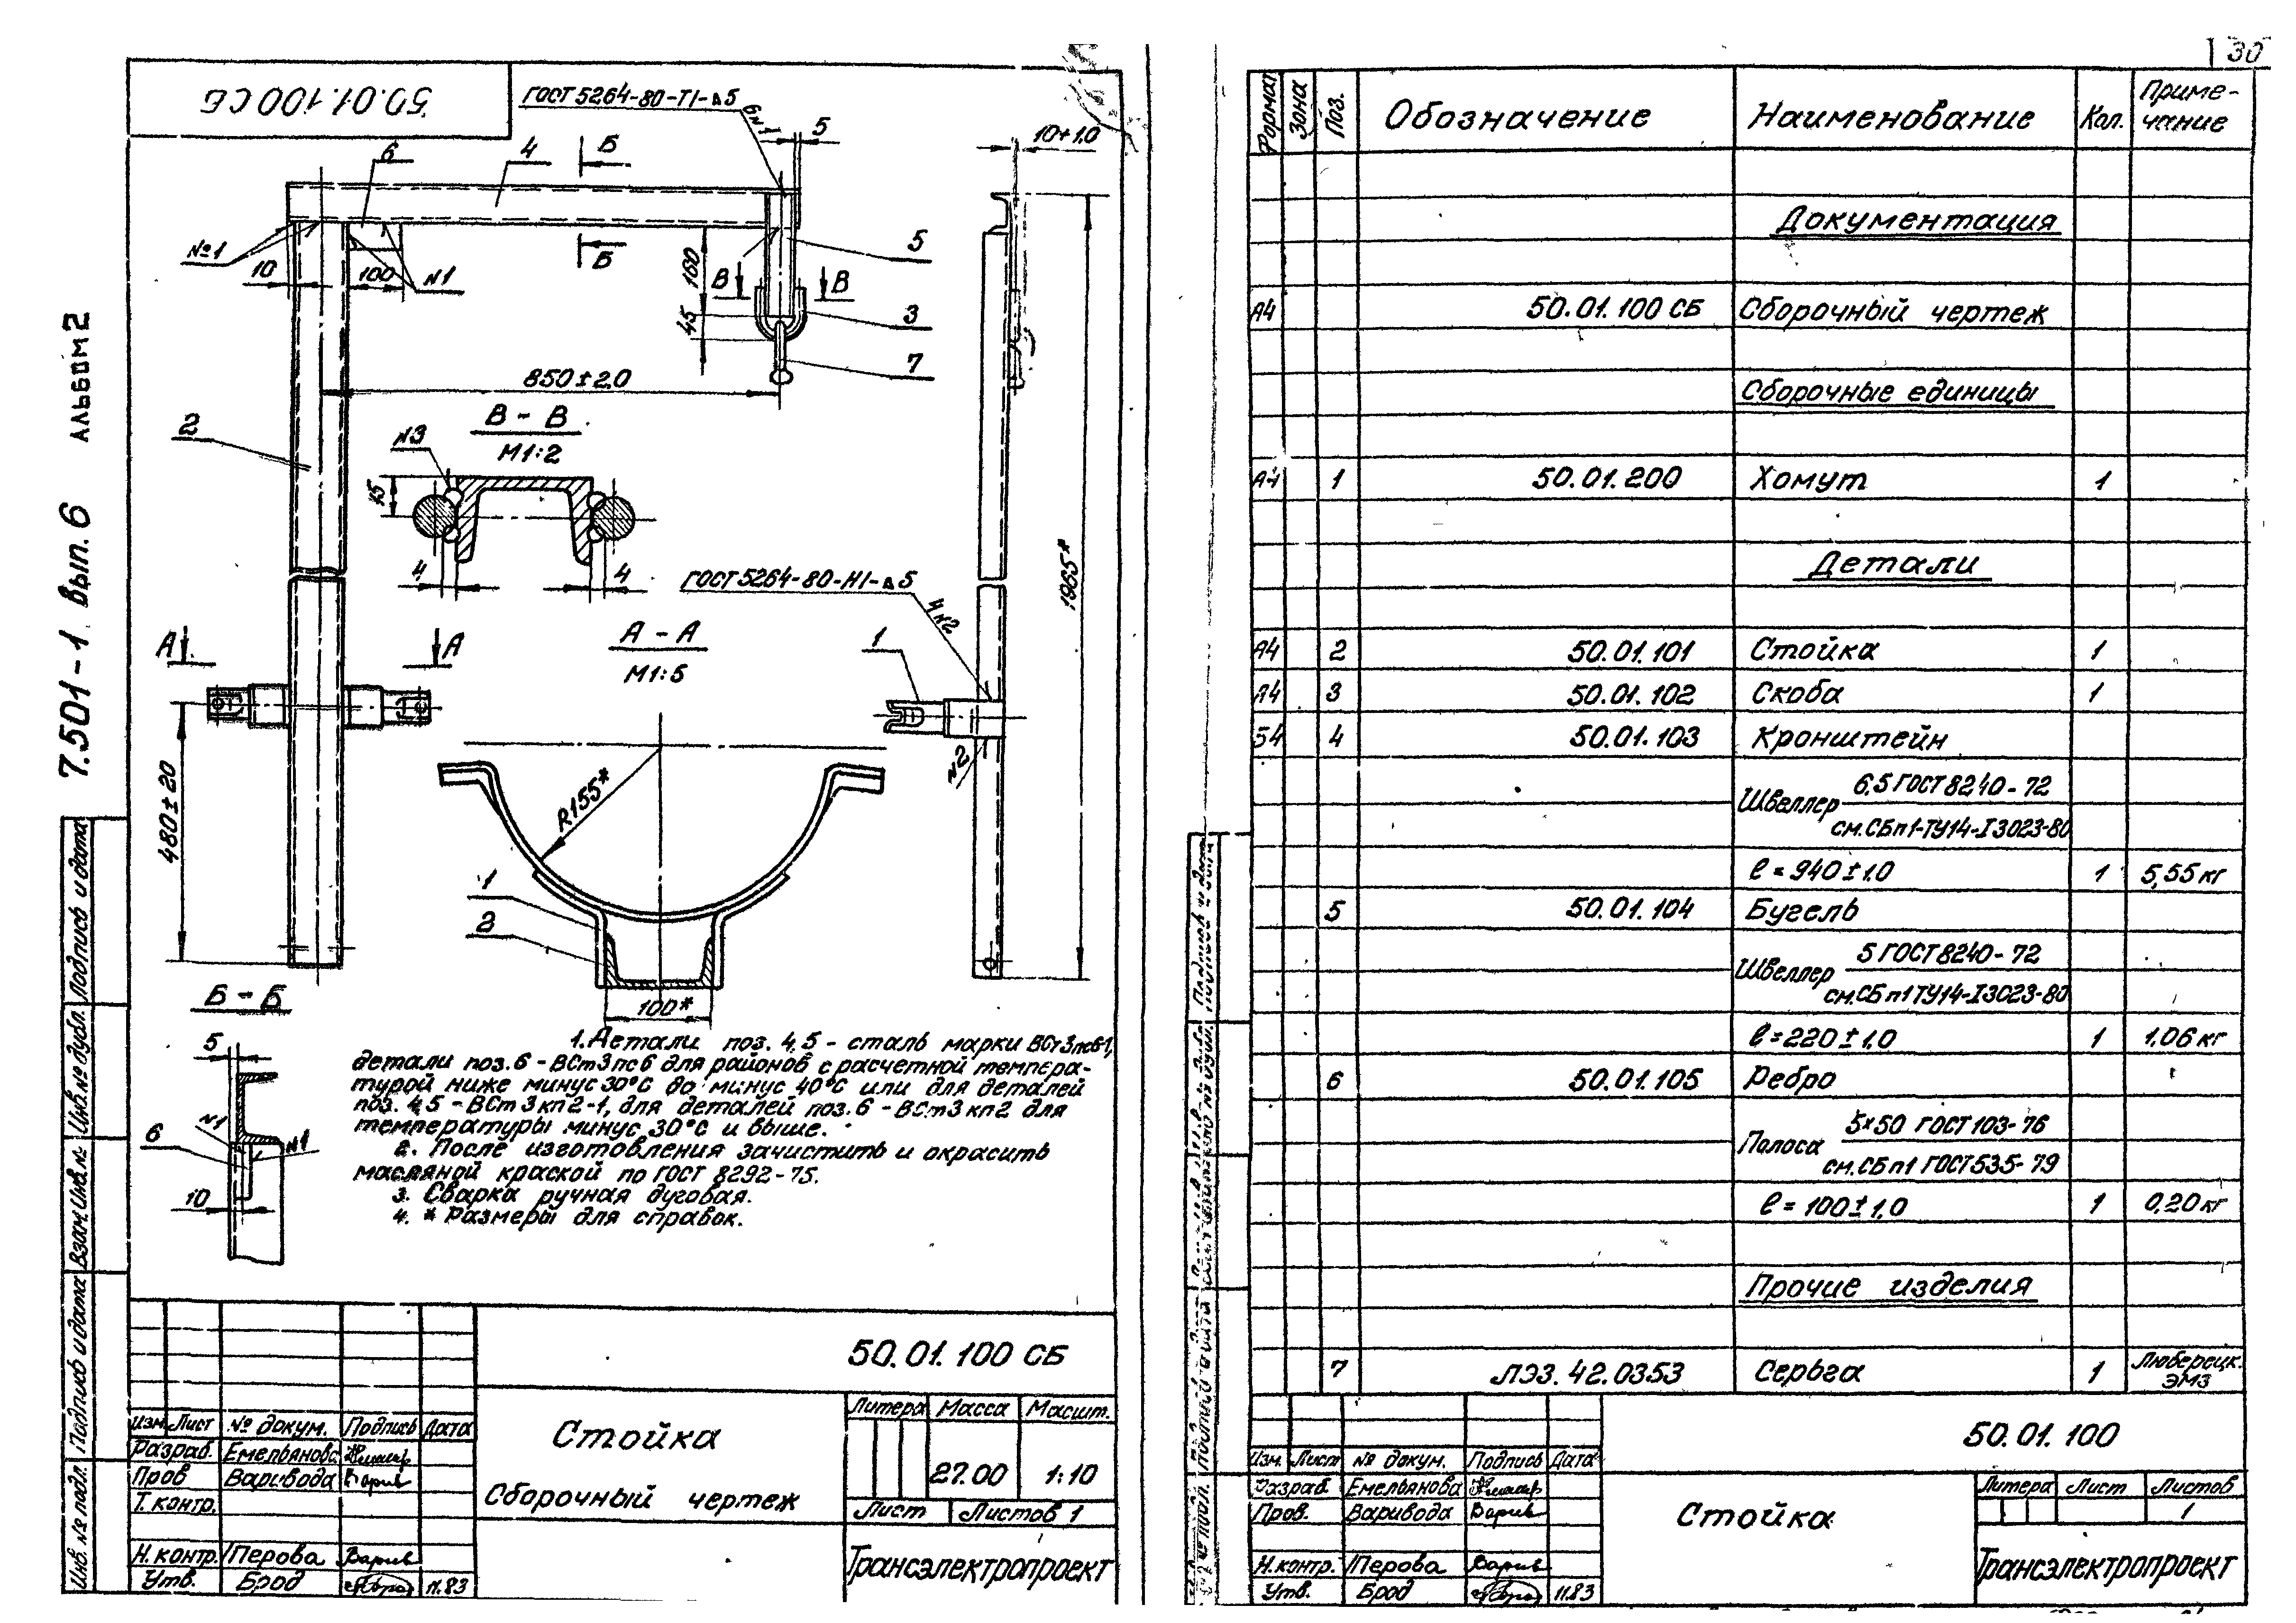 30
50.01.100 СБ
ГОСТ 5264-80-Т1-⊿5
6 №1
5
10±1.0
6
4
Б
№1
10
100
№1
Б
160
45
В
В
5
3
7
850±2.0
2
В - В
М1:2
№3
15
4
4
ГОСТ 5264-80-Н1-⊿5
4 №2
1965*
А
А
А - А
М1:5
1
№2
480±20
R155*
1
2
100*
Б - Б
5
6
№1
№1
10
1. Детали поз. 4,5 - сталь марки ВСт3пс6-1,
детали поз. 6 - ВСт3пс6 для районов с расчетной темпера-
турой ниже минус 30°С до минус 40°С или для деталей
поз. 4,5 - ВСт3кп2-1, для деталей поз. 6 - ВСт3кп2 для
температуры минус 30°С и выше.
2. После изготовления зачистить и окрасить
масляной краской по ГОСТ 8292-75.
3. Сварка ручная дуговая.
4. * Размеры для справок.
7.501-1 Вып. 6 Альбом 2
Инв. № подл. Подпись и дата Взам. Инв. № Инв. № дубл. Подпись и дата
50.01.100 СБ
Изм. Лист № докум. Подпись Дата
Разраб. Емельянова
Пров Варивода
Т. контр.
Н. контр. Перова
Утв. Брод 11.83
Стойка
Сборочный чертеж
Литера Масса Масшт.
27.00 1:10
Лист Листов 1
Трансэлектропроект
Формат Зона Поз. Обозначение Наименование Кол. Приме-
чание
Документация
А4 50.01.100 СБ Сборочный чертеж
Сборочные единицы
А4 1 50.01.200 Хомут 1
Детали
А4 2 50.01.101 Стойка 1
А4 3 50.01.102 Скоба 1
Б4 4 50.01.103 Кронштейн
Швеллер 6,5 ГОСТ 8240-72
см. СБ п1-ТУ14-I3023-80
ℓ = 940±1.0 1 5,55 кг
5 50.01.104 Бугель
Швеллер 5 ГОСТ 8240-72
см. СБ п1 ТУ14-I3023-80
ℓ = 220±1.0 1 1,06 кг
6 50.01.105 Ребро
Полоса 5×50 ГОСТ 103-76
см. СБ п1 ГОСТ 535-79
ℓ = 100±1.0 1 0,20 кг
Прочие изделия
7 ЛЭЗ. 42.0353 Серьга 1 Люберецк.
ЭМЗ
50.01.100
Изм. Лист № докум. Подпись Дата
Разраб. Емельянова
Пров. Варивода
Н. контр. Перова
Утв. Брод 11.83
Стойка
Литера Лист Листов
1
Трансэлектропроект